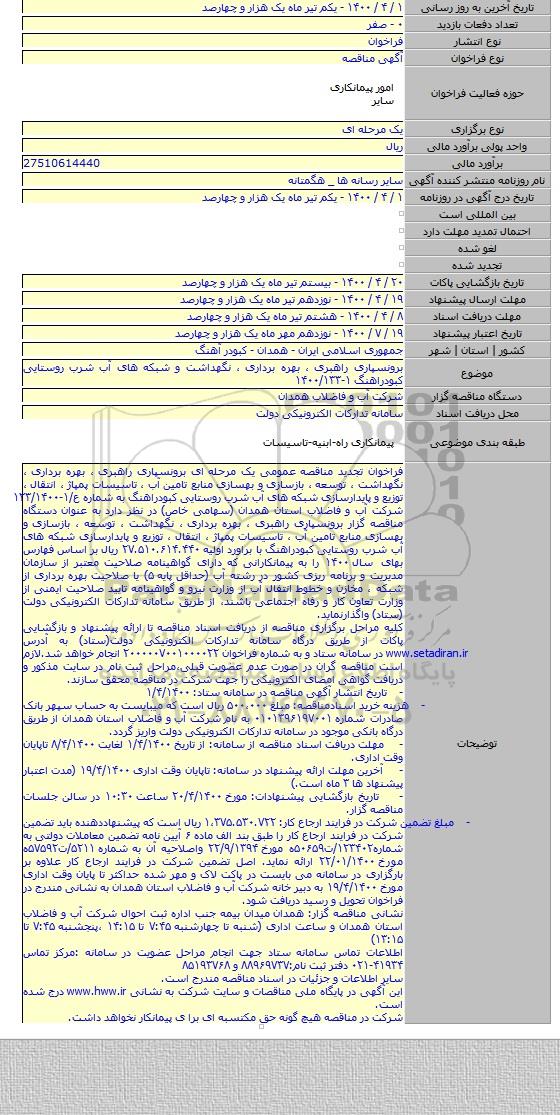 تاریخ آخرین به روز رسانی ۱ / ۴ / ۱۴۰۰ - یکم تیر ماه یک هزار و چهارصد
تعداد دفعات بازدید ۰ - صفر
نوع انتشار فراخوان
نوع فراخوان آگهی مناقصه
امور پیمانکاری
حوزه فعالیت فراخوان
سایر
نوع برگزاری یک مرحله ای
واحد پولی برآورد مالی ریال
برآورد مالی 27510614440
نام روزنامه منتشر کننده آگهی سایر رسانه ها _ هگمتانه
تاریخ درج آگهی در روزنامه ۱ / ۴ / ۱۴۰۰ - یکم تیر ماه یک هزار و چهارصد
بین المللی است
احتمال تمدید مهلت دارد
لغو شده
تجدید شده
تاریخ بازگشایی پاکات ۲۰ / ۴ / ۱۴۰۰ - بیستم تیر ماه یک هزار و چهارصد
مهلت ارسال پیشنهاد ۱۹ / ۴ / ۱۴۰۰ - نوزدهم تیر ماه یک هزار و چهارصد
مهلت دریافت اسناد ۸ / ۴ / ۱۴۰۰ - هشتم تیر ماه یک هزار و چهارصد
تاریخ اعتبار پیشنهاد ۱۹ / ۷ / ۱۴۰۰ - نوزدهم مهر ماه یک هزار و چهارصد
کشور | استان | شهر جمهوری اسلامی ایران - همدان - کبودر آهنگ
موضوع برونسپاری راهبری ، بهره برداری ، نگهداشت و شبکه های آب شرب روستایی
کبودراهنگ ۱-۱۴۰۰/۱۳۳
دستگاه مناقصه گزار شرکت آب و فاضلاب همدان
محل دریافت اسناد سامانه تدارکات الکترونیکی دولت
طبقه بندی موضوعی پیمانکاری راه-ابنیه-تاسیسات
توضیحات
فراخوان تجدید مناقصه عمومی یک مرحله ای برونسپاری راهبری ، بهره برداری ،
نگهداشت ، توسعه ، بازسازی و بهسازی منابع تامین آب ، تاسیسات پمپاژ ، انتقال ،
توزیع و پایدارسازی شبکه های آب شرب روستایی کبودراهنگ به شماره ع/۱-۱۳۳/۱۴۰۰
شرکت آب و فاضلاب استان همدان (سهامی خاص) در نظر دارد به عنوان دستگاه
مناقصه گزار برونسپاری راهبری ، بهره برداری ، نگهداشت ، توسعه ، بازسازی و
بهسازی منابع تامین آب ، تاسیسات پمپاژ ، انتقال ، توزیع و پایدارسازی شبکه های
آب شرب روستایی کبودراهنگ با برآورد اولیه ۲۷.۵۱۰.۶۱۴.۴۴۰ ریال بر اساس فهارس
بهای سال ۱۴۰۰ را به پیمانکارانی که دارای گواهینامه صلاحیت معتبر از سازمان
مدیریت و برنامه ریزی کشور در رشته آب (حداقل پایه ۵) یا صلاحیت بهره برداری از
شبکه ، مخازن و خطوط انتقال آب از وزارت نیرو و گواهینامه تایید صلاحیت ایمنی از
وزارت تعاون کار و رفاه اجتماعی باشند، از طریق سامانه تدارکات الکترونیکی دولت
(ستاد) واگذارنماید.
کلیه مراحل برگزاری مناقصه از دریافت اسناد مناقصه تا ارائه پیشنهاد و بازگشایی
پاکات از طریق درگاه سامانه تدارکات الکترونیکی دولت(ستاد) به آدرس
www.setadiran.ir در سامانه ستاد و به شماره فراخوان ۲۰۰۰۰۰۷۰۰۱۰۰۰۰۲۲ انجام خواهد شد.لازم
است مناقصه گران در صورت عدم عضویت قبلی،مراحل ثبت نام در سایت مذکور و
دریافت گواهی امضای الکترونیکی را جهت شرکت در مناقصه محقق سازند.
- تاریخ انتشار آگهی مناقصه در سامانه ستاد: ۱/۴/۱۴۰۰
- هزینه خرید اسنادمناقصه: مبلغ ۵۰۰.۰۰۰ ریال است که میبایست به حساب سپهر بانک
صادرات شماره ۰۱۰۱۳۹۶۱۹۷۰۰۱ به نام شرکت آب و فاضلاب استان همدان از طریق
درگاه بانکی موجود در سامانه تدارکات الکترونیکی دولت واریز گردد.
- مهلت دریافت اسناد مناقصه از سامانه: از تاریخ ۱/۴/۱۴۰۰ لغایت ۸/۴/۱۴۰۰ تاپایان
وقت اداری.
- آخرین مهلت ارائه پیشنهاد در سامانه: تاپایان وقت اداری ۱۹/۴/۱۴۰۰ (مدت اعتبار
پیشنهاد ها ۳ ماه است.)
- تاریخ بازگشایی پیشنهادات: مورخ ۲۰/۴/۱۴۰۰ ساعت ۱۰:۳۰ در سالن جلسات
مناقصه گزار.
- مبلغ تضمین شرکت در فرایند ارجاع کار: ۱،۳۷۵.۵۳۰.۷۲۲ ریال است که پیشنهاددهنده باید تضمین
شرکت در فرایند ارجاع کار را طبق بند الف ماده ۶ آیین نامه تضمین معاملات دولتی به
شماره۱۲۳۴۰۲/ت۵۰۶۵۹ه مورخ ۲۲/۹/۱۳۹۴ واصلاحیه آن به شماره ۵۲۱۱/ت۵۷۵۹۲ه
مورخ ۲۲/۰۱/۱۴۰۰ ارائه نماید. اصل تضمین شرکت در فرایند ارجاع کار علاوه بر
بارگزاری در سامانه می بایست در پاکت لاک و مهر شده حداکثر تا پایان وقت اداری
مورخ ۱۹/۴/۱۴۰۰ به دبیر خانه شرکت آب و فاضلاب استان همدان به نشانی مندرج در
فراخوان تحویل و رسید دریافت شود.
نشانی مناقصه گزار: همدان میدان بیمه جنب اداره ثبت احوال شرکت آب و فاضلاب
استان همدان و ساعت اداری (شنبه تا چهارشنبه ۷:۴۵ تا ۱۴:۱۵ ،پنجشنبه ۷:۴۵ تا
۱۳:۱۵)
اطلاعات تماس سامانه ستاد جهت انجام مراحل عضویت در سامانه :مرکز تماس
۰۲۱-۴۱۹۳۴ دفتر ثبت نام:۸۸۹۶۹۷۳۷ و ۸۵۱۹۳۷۶۸
سایر اطلاعات و جزئیات در اسناد مناقصه مندرج است.
این آگهی در پایگاه ملی مناقصات و سایت شرکت به نشانی www.hww.ir درج شده
است.
شرکت در مناقصه هیچ گونه حق مکتسبه ای برا ی پیمانکار نخواهد داشت.